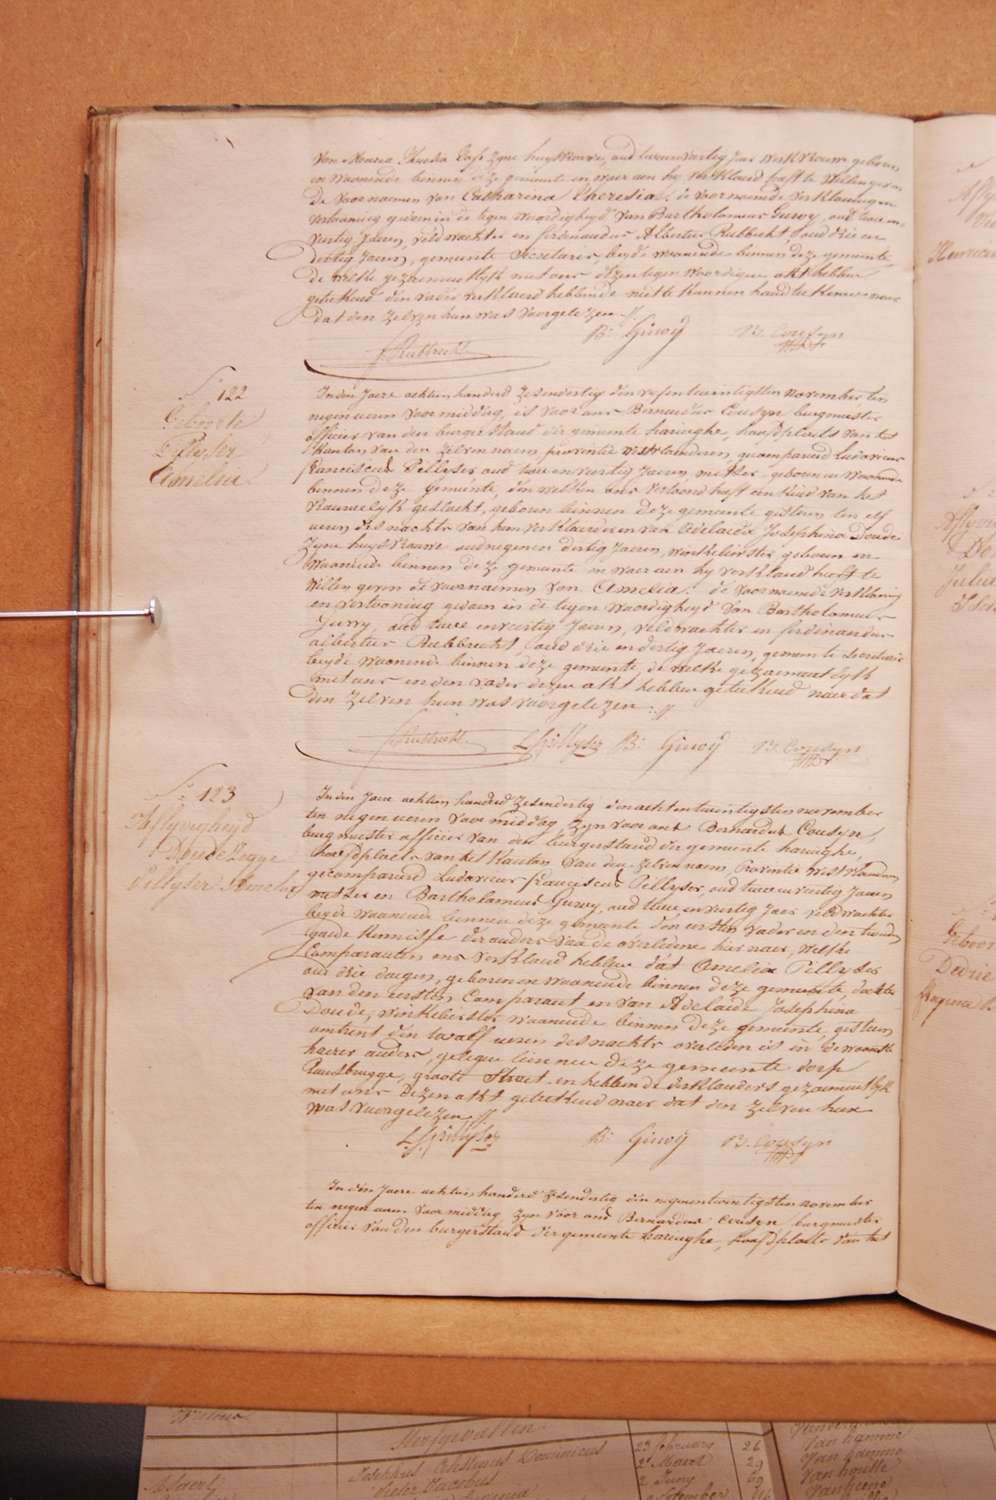 van Maria Theresia Cass zyne huysvrouwe, oud twee en veertig Jaer werkvrouw geboren
en woonende binnen deze gemeente en waer aen hy verklaerd heeft te willen geven
de voornaemen van Catharina Theresia, de voornoemde verklaering en
vertooning gedaen in de tegenwoordigheyd van Bartholomeus Gewoy, oud twee en
veertig Jaeren, veldwachter en ferdinandus Albertus Rubbrecht oud drie en
dertig Jaeren, gemeente secretaris, beyde woonende binnen deze gemeente,
de welke gezaementlyk met ons dezen tegenwoordigen akt hebben
geteekend den vader verklaerd hebbende niet te kunnen handteekenen naer
dat den zelven hun was voorgelezen //.
Rubbrecht B: Gewoy B. Cousyn
N° 122
Geboorte
Pillyser
Amelia
In den Jaere achttien honderd zesendertig den zesentwintigsten november ten
negen uren voormiddag, is voor ons Bernardus Cousyn burgmeester
officier van den burgerstand der gemeente haringhe, hoofdplaets van het
Kanton van den zelven naem, provintie westvlanderen, gecompareerd Ludovicus
franciscus Pillyser oud twee en veertig Jaeren, metser, geboren en woonende
binnen deze gemeente, den welken ons vertoond heeft een kind van het
vrouwelyk geslacht, geboren binnen deze gemeente gisteren ten elf
uren des nachts van hun verklaerder en van Adelaide Josephina Doude
zyne huysvrouwe oud negen en dertig Jaeren, winkelierster, geboren en
woonende binnen deze gemeente en waer aen hy verklaerd heeft te
willen geven de voornaemen van Amelia: de voornoemde verklaering
en vertooning gedaen in de tegenwoordigheyd van Bartholomeus
Gewoy, oud twee en veertig Jaeren, veldwachter en ferdinandus
albertus Rubbrecht, oud drie en dertig Jaeren, gemeente secretaris
beyde woonende binnen deze gemeente, de welke gezaementlyk
met ons en den vader dezen akt hebben geteekend naer dat
den zelven hun was voorgelezen. //
Rubbrecht L f Pillyser B: Gewoy B. Cousyn
N° 123
Aflyvigheyd
Pillyser Amelia
In den Jaere achttien honderd zesendertig den acht en twintigsten november
ten negen uren voormiddag zyn voor ons Bernardus Cousyn,
burgmeester officier van den burgerstand der gemeente haringhe,
hoofdplaets van het Kanton van den zelven naem, Provintie westvlanderen
gecompareerd Ludovicus franciscus Pillyser, oud twee en veertig Jaeren
metser en Bartholomeus Gewoy, oud twee en veertig Jaer veldwachter
beyde woonende binnen deze gemeente den eersten vader en den tweeden
goede kennisse der ouders van de overledene hier naer, welke
Comparanten ons verklaerd hebben dat Amelia Pillyser
oud drie daegen, geboren en woonende binnen deze gemeente, dochter
van den eersten Comparant en van Adelaide Josephina
Doude, winkelierster woonende binnen deze gemeente, gisteren
omtrent den twalf uren des nachts overleden is in de woonste
haerer ouders, gelegen binnen deze gemeente dorp
Rousbrugge, groote Straet en hebbende verklaerders gezaementlyk
met ons dezen akt geteekend naer dat den zelven hun
was voorgelezen //
L. f. Pillyser B: Gewoy B. Cousyn
In den Jaere achttien honderd zesendertig den negenentwintigsten november
ten negen uren voormiddag zyn voor ons Bernardus Cousyn, burgmeester
officier van den burgerstand der gemeente haringhe, hoofdplaets van het